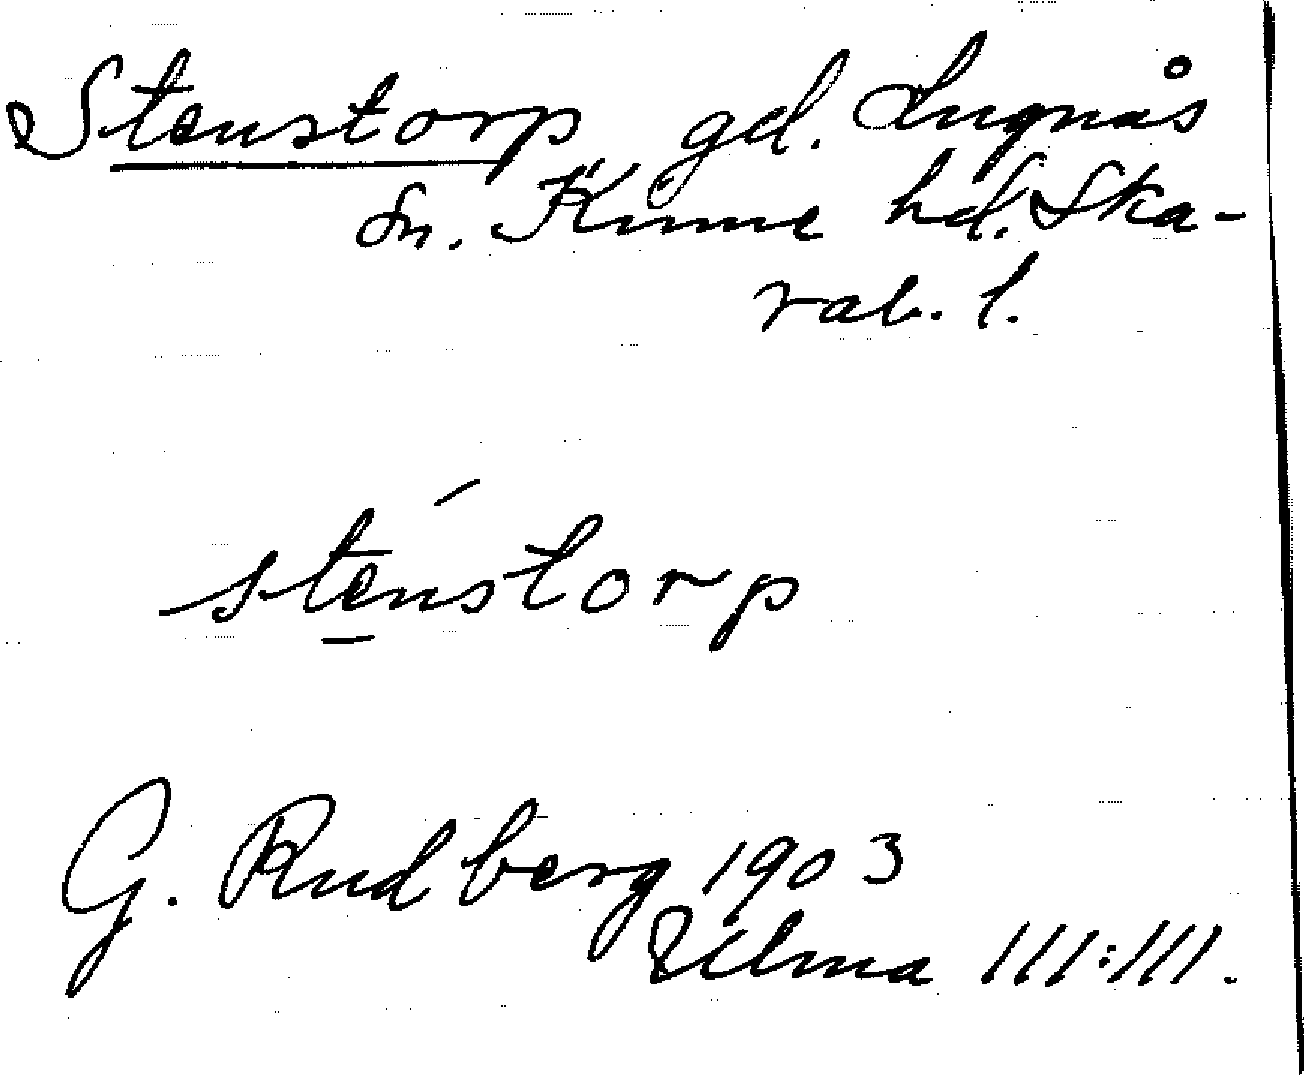 Stenstorp gd. Lugnås
sn. Kinne hd. Ska-
rab. l.
sténstorp
G. Rudberg 1903
Vilma III:III.